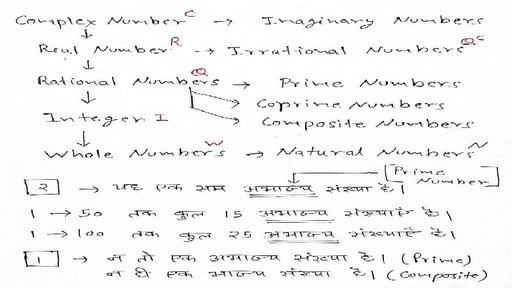 Complex Number C → Imaginary Numbers
↓
Real Number R → Irrational Numbers Q^c
↓
Rational Numbers Q → Prime Numbers
↓ → Coprime Numbers
Integer I → Composite Numbers
↓
Whole Numbers W → Natural Numbers N
[Prime Number]
2 → यह एक सम अभाज्य संख्या है।
1 → 50 तक कुल 15 अभाज्य संख्याएँ है।
1 → 100 तक कुल 25 अभाज्य संख्याएँ है।
1 → न तो एक अभाज्य संख्या है। (Prime)
न ही एक भाज्य संख्या है। (Composite)